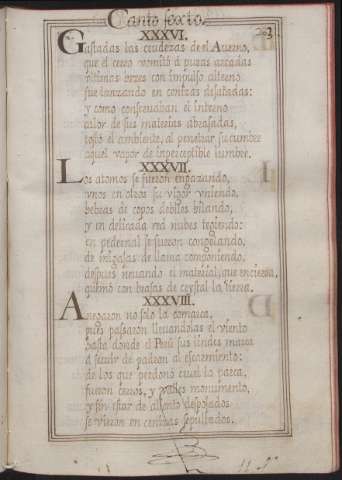 Canto sexto.
XXXVI.
Gastadas las crudezas de el Auerno,
que el cerro vomitó a puras arcadas
vltimas vezes con impulso alterno
fue lanzando en cenizas desatadas:
y como conseruaban el interno
calor de sus materias abrasadas,
tostó el ambiente, al penetrar su cumbre
aquel vapor de inperceptible lumbre.
XXXVII.
Los atomos se fueron engazando,
vnos en otros su vigor vniendo,
hebras de copos debiles hilando,
y en delicada red nubes texiendo:
en pedernal se fueron congelando,
de migajas de llama componiendo,
despues neuando el material, que encierra,
quemó con brasas de crystal la tierra.
XXXVIII.
Anegaron no solo la comarca,
pues passaron lleuandolas el viento
hasta donde el Perù sus lindes marca
a seruir de padron al escarmiento:
de los que perdonó cruel la parca,
fueron cerros, y valles monumento,
y sin estar de aliento despojados
se vieron en cenizas sepultados.